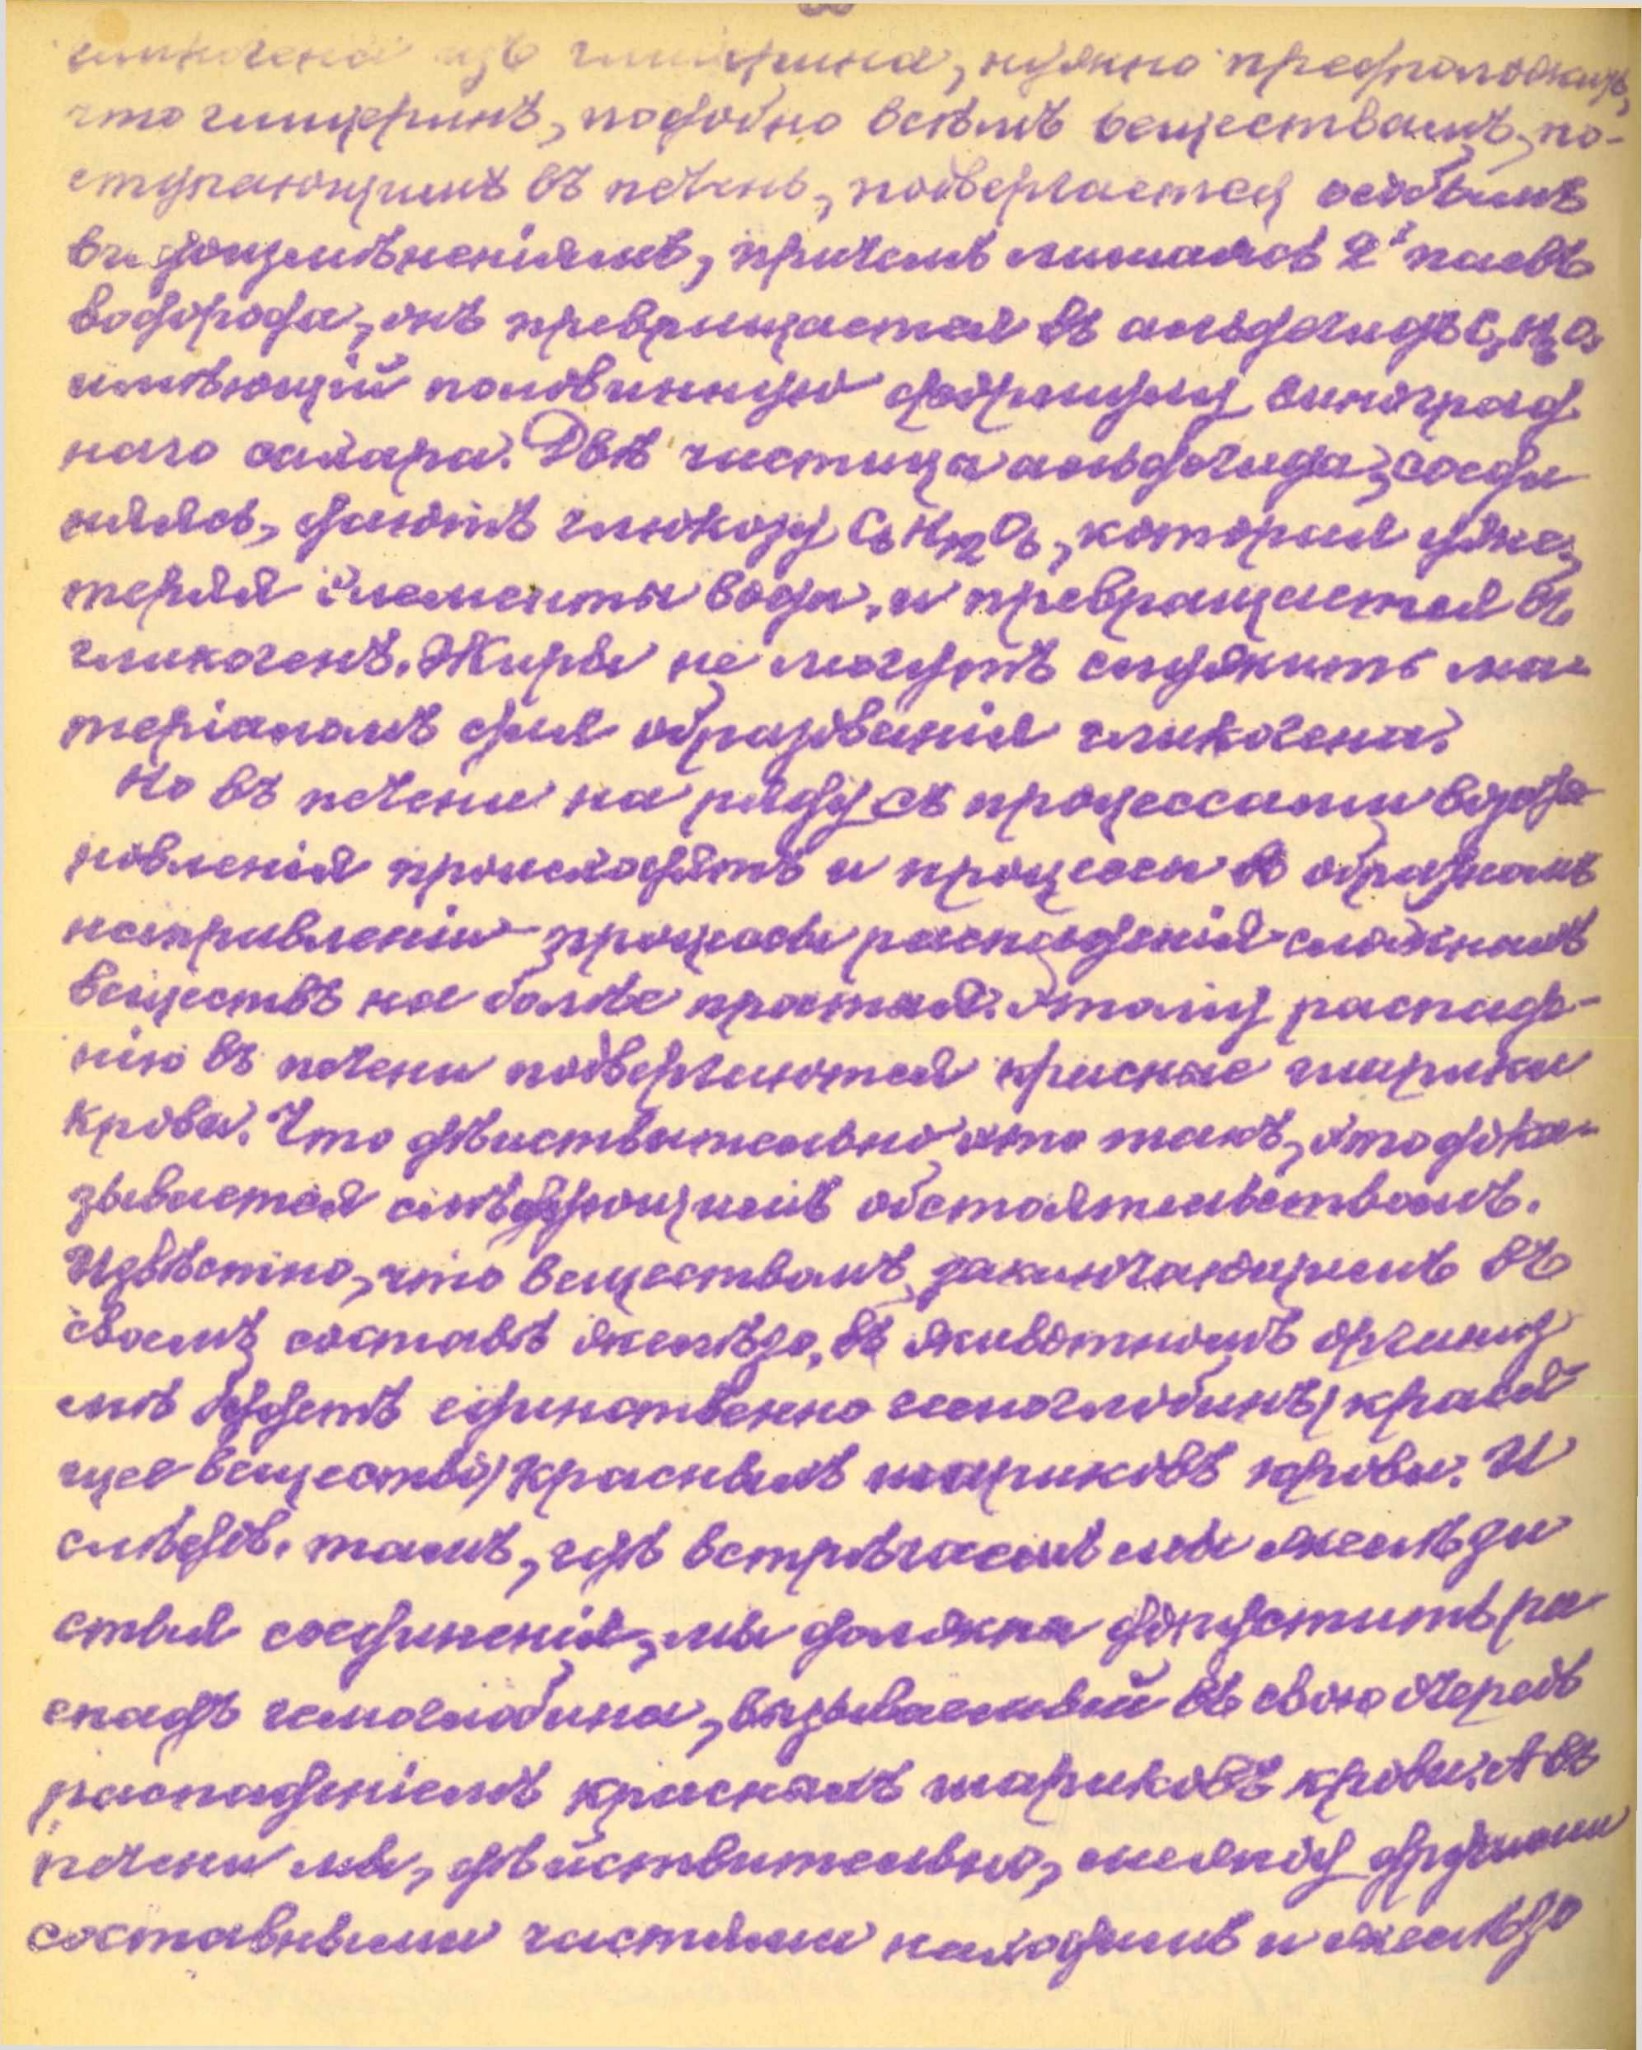 гликогена изъ глицерина, нужно предположить,
что глицеринъ, подобно всѣмъ веществамъ, по-
ступающимъ въ печень, подвергается особымъ
видоизмѣненіямъ, причемъ лишаясь 2х паевъ
водорода, онъ превращается въ альдегидъ C3H6O3
имѣющій половинную формулу виноград
наго сахара. Двѣ частицы альдегида, соеди
няясь, даютъ глюкозу C6H12O6, которая уже,
теряя элементы воды, и превращается въ
гликогенъ. Жиры не могутъ служить ма-
теріаломъ для образованія гликогена.
Но въ печени на ряду съ процессами возста
новленія происходятъ и процессы въ обратномъ
направленіи - процессы распаденія сложныхъ
веществъ на болѣе простыя. Этому распаде-
нію въ печени подвергаются красные шарики
крови. Что дѣйствительно это такъ, это дока-
зывается слѣдующимъ обстоятельствомъ.
Извѣстно, что веществомъ, заключающимъ въ
своемъ составѣ желѣзо, въ животномъ организ
мѣ будетъ единственно гемоглобинъ (крася
щее вещество) красныхъ шариковъ крови. И
слѣдов. тамъ, гдѣ встрѣчаемъ мы желѣзи
стыя соединенія, мы должны допустить ра
спадъ гемоглобина, вызываемый въ свою очередь
распаденіемъ красныхъ шариковъ крови. А въ
печени мы, дѣйствительно, между другими
составными частями находимъ и желѣзо